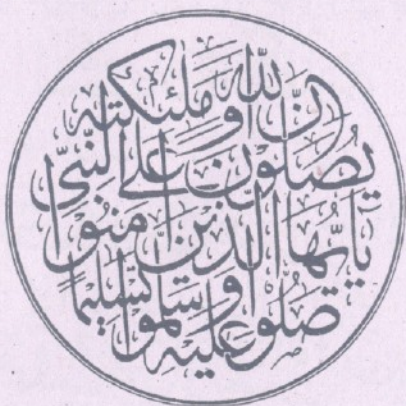 إنّ الله وملئكته
يصلّون على النّبيّ
يا أيّها الّذين امنوا
صلّوا عليه وسلّموا تسليمًا